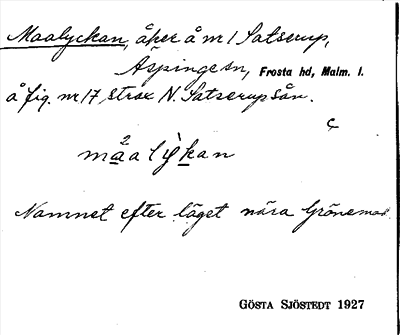 Maalyckan, åker å nr 1 Satserup,
Äspinge sn, Frosta hd, Malm. l.
å fig. nr 17 strax N. Satserupsån.
ç
må²al ỳkan
Namnet efter läget nära Grönemad.
GÖSTA SJÖSTEDT 1927